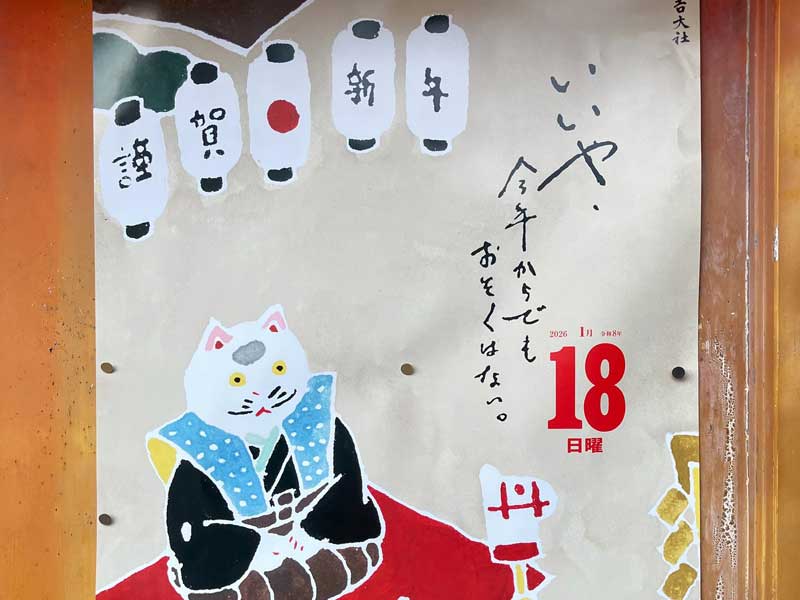 謹賀新年
吉大社
いいや、
今年からでも
おそくはない。
2026 1月 令和8年
18
日曜